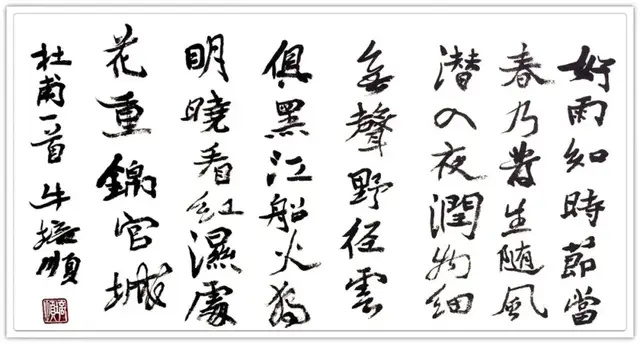 好雨知時節當
春乃發生随風
潜入夜潤物細
無聲野径雲
俱黑江船火獨
明曉看紅濕處
花重錦官城
杜甫一首 牛振順